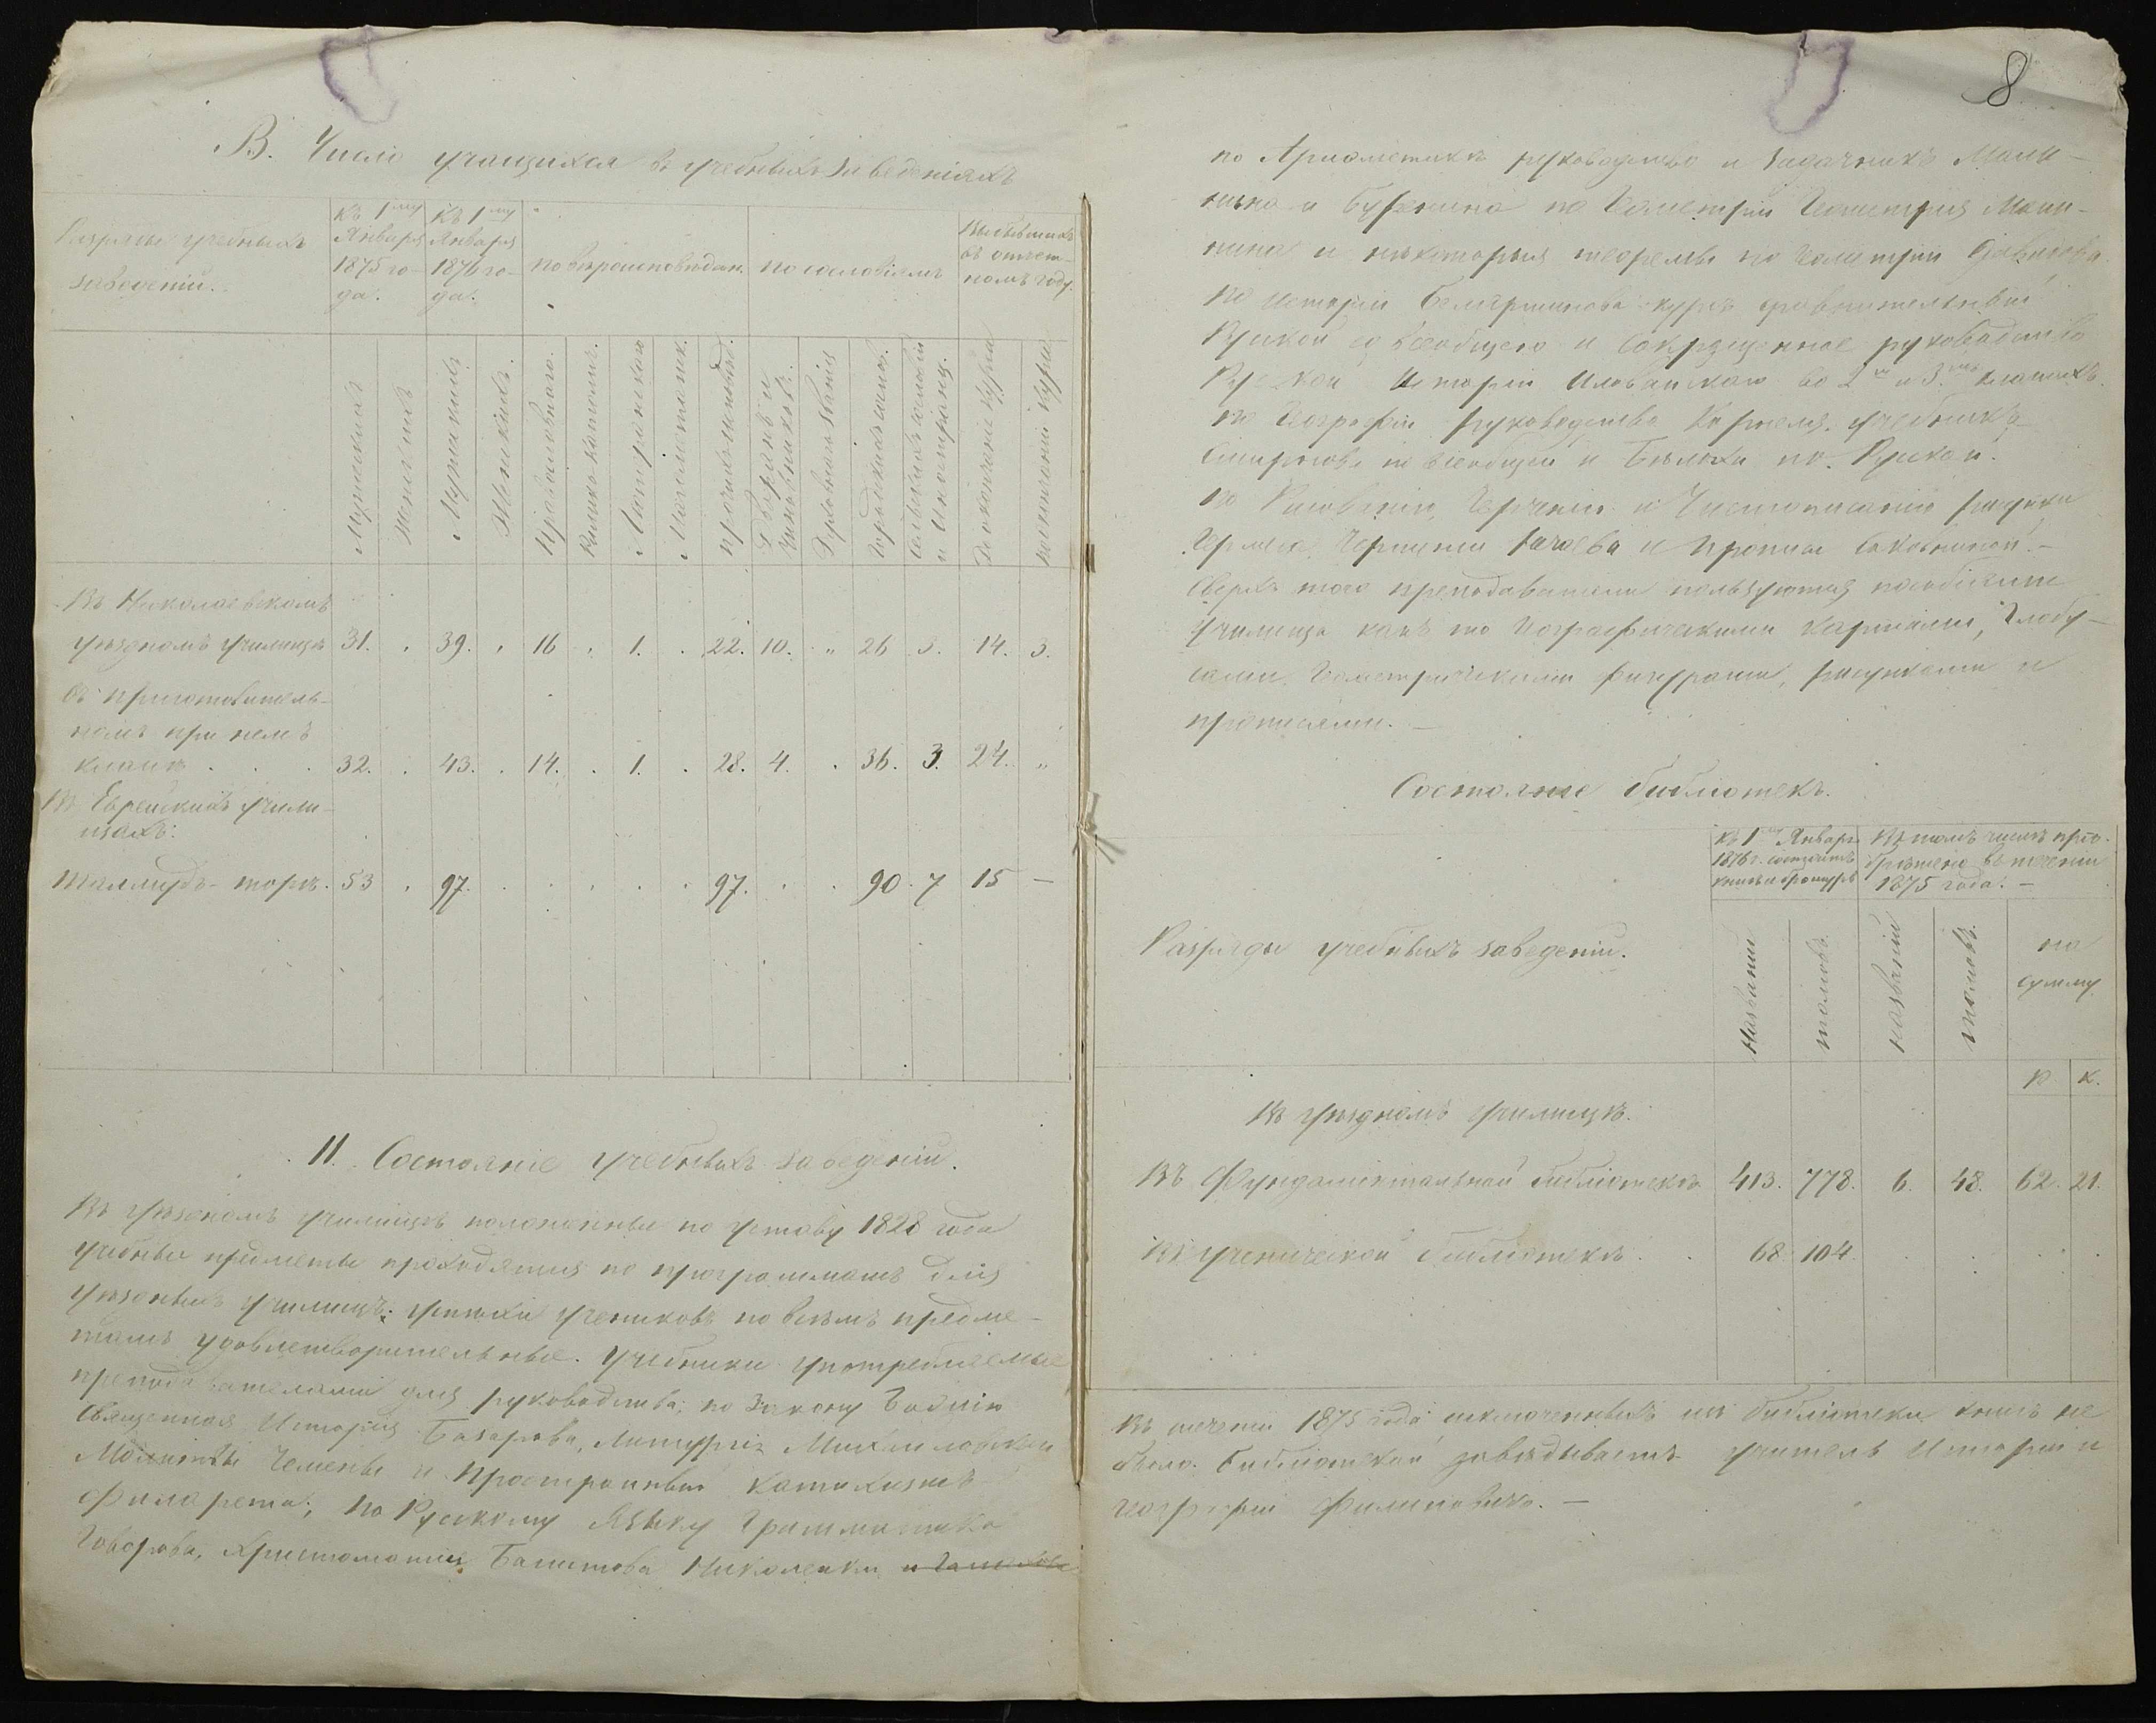 В. Число учащихся въ учебныхъ заведеніяхъ
Разряды учебныхъ заведеній.
Къ 1му Января 1875 го-да.
Къ 1му Января 1876 го-да.
по вѣроисповѣдан.
по сословіямъ
Выбывшихъ въ отчет-номъ году.
Мужчинъ
Женщинъ
Мужчинъ
Женщинъ
Православнаго.
Римско-католич.
Лютеранскаго
Магометанск.
Прочихъ исповѣд.
Дворянъ и чиновниковъ.
Духовнаго званія
Городскихъ сослов.
Сельскихъ сословій и иностранц.
До окончанія курса
По окончаніи курса
Въ Николаевскомъ
уѣздномъ училищѣ 31. . 39. . 16 . 1. . 22. 10. " 26 3. 14. 3.
Въ приготовитель-
номъ при немъ
классѣ . . . 32. . 43. . 14. . 1. . 28. 4. . 36. 3. 24. "
Въ Еврейскихъ учили-
щахъ:
Талмудъ-торѣ. 53 . 97. . . . . . 97. . . 90. 7 15 —
II. Состояніе учебныхъ заведеній.
Въ уѣздномъ училищѣ положенные по уставу 1828 года
учебные предметы проходятся по программамъ для
уѣздныхъ училищъ; успѣхи учениковъ по всѣмъ предме-
тамъ удовлетворительные. Учебники употребляемые
преподавателями для руководства: по Закону Божію
Священная Исторія Базарова, Литургія Михайловскаго
Молитвы Чемены и Пространный катихизисъ
Филарета; по Русскому языку Грамматика
Говорова, Христоматія Басистова Николенки и
8
по Ариѳметикѣ руководство и задачникъ Мали-
нина и Буренина по Геометріи Геометрія Мали-
нина и нѣкоторыя теоремы по Геометріи Давидова.
по исторіи Беллярминова курсъ сравнительный
Русской со всеобщею и Сокращенное руководство
Русской Исторіи Иловайскаго во 2мъ и 3мъ классахъ.
по Географіи руководство Корнеля, учебникъ
Смирнова по всеобщей и Бѣлоха по Русской.
по Рисованію, Черченію и Чистописанію рисунки
Гермеса, Черченіи и прописи
Сверхъ того преподаватели пользуются пособіями
училища какъ то Географическими картами, Глобу-
сами, Геометрическими фигурами, рисунками и
прописями. —
Состояніе библіотекъ.
Разряды учебныхъ заведеній.
Къ 1му Января 1876 г. состоитъ книгъ и брошуръ
Въ томъ числѣ прiо-брѣтено въ теченіи 1875 года. —
Названій
томовъ.
названій
томовъ.
на сумму
Р. К.
Въ уѣздномъ училищѣ.
Въ Фундаментальной библіотекѣ 413. 778. 6. 48. 62. 21.
Въ ученической библіотекѣ . . 68. 104. . . . .
Въ теченіи 1875 года исключенныхъ изъ библіотеки книгъ не
было. Библіотекой завѣдываетъ учитель Исторіи и
географіи Филиповичъ. —